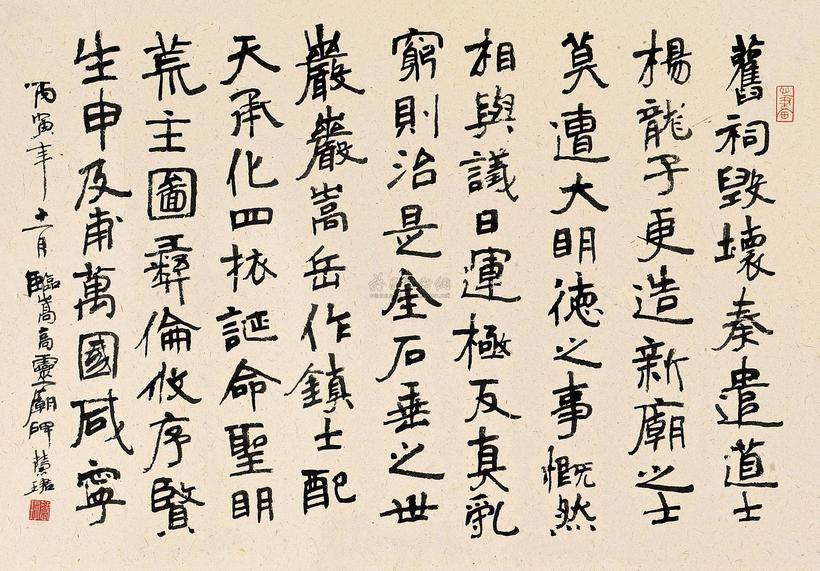 舊祠毀壞奏遣道士
楊龍子更造新廟之士
莫遭大明徳之事慨然
相與議曰運極反真乱
窮則治是金石垂之世
巖巖嵩岳作鎮士配
天承化四誕命聖明
荒主圖彝倫攸序賢
生申及甫萬國咸寧
丙寅年十一月臨嵩高靈廟碑